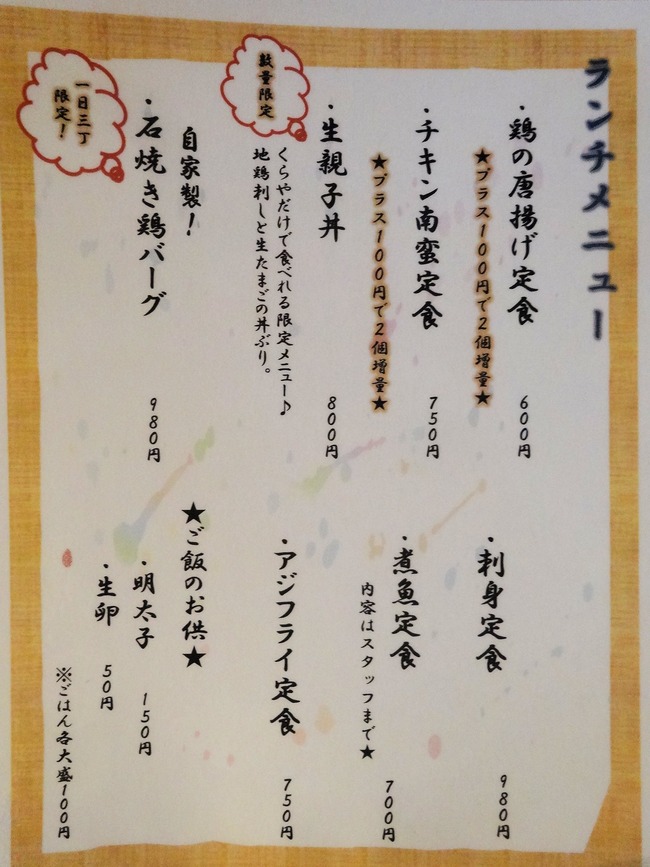 ランチメニュー
・鶏の唐揚げ定食 600円
★プラス100円で2個増量★
・チキン南蛮定食 750円
★プラス100円で2個増量★
数量限定
・生親子丼 800円
くらやだけで食べれる限定メニュー♪
地鶏刺しと生たまごの丼ぶり。
自家製!
一日三丁
限定!
・石焼き鶏バーグ 980円
・刺身定食 980円
・煮魚定食 700円
内容はスタッフまで★
・アジフライ定食 750円
★ご飯のお供★
・明太子 150円
・生卵 50円
※ごはん各大盛100円